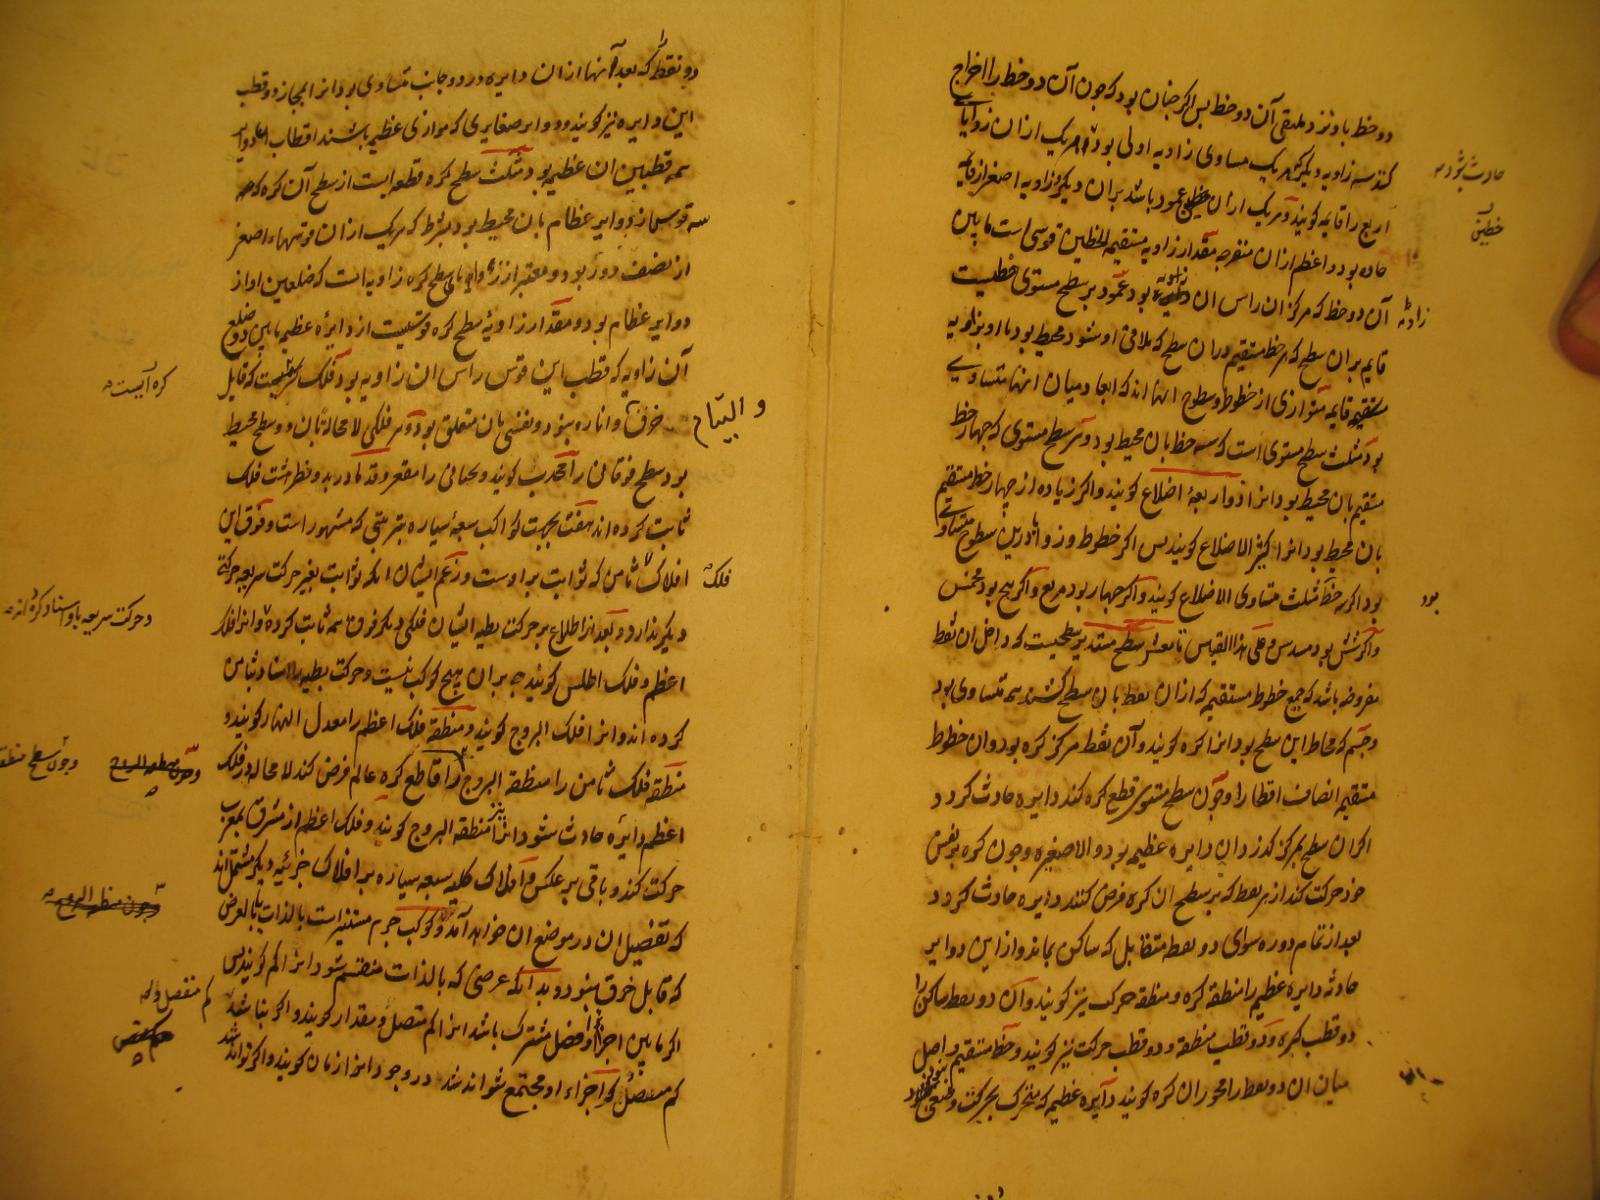 دو خط با و نزد ملتقی آن دو خط پس اکر چنان بود که چون آن دو خط را اخراج
کنند سه زاویه دیکر که هر یک مساوی زاویه اولی بود هر یک ازان زوایاء
اربع را قایمه کویند و هر یک ازان خطین عمود باشد بران دیکر و زاویه اصغر از قایمه
حاده بود و اعظم ازان منفرجه مقدار زاویه مستقیم الخطین قوسی است ما بین
آن دو خط که مرکز ان راس ان زاویه بود عمود بر سطح مستوی خطیست
قایم بران سطح که هر خط مستقیم دران سطح که ملاقی او شود محیط بود با او بزاویه
قایمه متوازی از خطوط و سطوح انها اند که ابعاد میان انها متساوی
بود مثلث سطح مستوی است که سه خط بان محیط بود و هر سطح مستوی که چهار خط
مستقیم بان محیط بود انرا ذو اربعة اضلاع کویند و اکر زیاده از چهار خط مستقیم
بان محیط بود انرا کثیر الاضلاع کویند پس اکر خطوط و زوایا درین سطوح متساوی
بود اکر سه خط مثلث متساوی الاضلاع کویند و اکر چهار بود مربع و اکر پنج بود مخمس
و اکر شش بود مسدس و علی هذا القیاس تا معشر سطح مستدیر سطحیست که در داخل ان نقطه
مفروضه باشد که جمیع خطوط مستقیمه که ازان نقطه بان سطح کشند همه متساوی بود
و جسم که محاط این سطح بود انرا کره کویند و آن نقطه مرکز کره بود و ان خطوط
مستقیم انصاف اقطار او چون سطح مستوی قطع کره کند دایره حادث کردد
اکر ان سطح بمرکز کذرد ان دایره عظیمه بود و الا صغیره و چون کره بر نفس
خود حرکت کند از هر نقطه که بر سطح ان کره فرض کنند دایره حادث کردد
بعد از تمام دوره سوای دو نقطه متقابل که ساکن بماند و از این دوایر
حادثه دایره عظیمه را منطقه کره و منطقه حرکت نیز کویند و آن دو نقطه ساکن را
دو قطب کره و دو قطب منطقه و دو قطب حرکت نیز کویند و خط مستقیم واصل
میان ان دو نقطه را محور ان کره کویند دایره عظیمه که متحرک بحرکت وضعی
حادث شود
خطین
زاویه
بود
دو نقطه که بعد آنها ازان دایره در دو جانب متساوی بود انرا مجازا دو قطب
این دایره نیز کویند و دوایر صغایری که موازی عظیمه باشند اقطاب
همه قطبین ان عظیمه بود مثلث سطح کره قطعه ایست از سطح آن کره که
سه قوس از دوایر عظام بان محیط بود بشرط که هر یک ازان قوسها اصغر
از نصف دور بود و معتبر از زوایای سطح کره زاویه است که ضلعین او از
دوایر عظام بود و مقدار زاویهٔ سطح کره قوسیست از دایره عظیمه ما بین دو ضلع
آن زاویه که قطب این قوس راس ان زاویه بود فلک که قابل
خرق و اناره نبود و نفسی بان متعلق بود و هر فلکی لا محاله بان دو سطح محیط
بود سطح فوقانی را محدب کویند و تحتانی را مقعر و قدما در بدو نظر هشت فلک
ثابت کرده اند هفت بجهت کواکب سبعهٔ سیاره بترتیبی که مشهور است و فوق این
افلاک ثامن که ثوابت بر اوست و زعم ایشان انکه ثوابت بغیر حرکت سریعه حرکتی
دیکر ندارد و بعد از اطلاع بر حرکت بطیه ایشان فلکی دیکر فوق همه ثابت کرده و انرا فلک
اعظم و فلک اطلس کویند چه بران هیچ کوکب نیست و حرکت بطیه را اسناد بثامن
کرده اند و انرا فلک البروج کویند و منطقه فلک اعظم را معدل النهار کویند و
منطقه فلک ثامن را منطقة البروج را قاطع کره عالم فرض کند لا محاله در فلک
اعظم دایره حادث شود انرا نیز منطقة البروج کویند و فلک اعظم از مشرق بمغرب
حرکت کند و باقی بر عکس و افلاک کلیه سبعه سیاره بر افلاک جزئیه دیکر مشتمل اند
که تفصیل ان در موضع ان خواهد آمد و کوکب جرم مستنیر است بالذات یا بالعرض
که قابل خرق نبود و بدانکه عرضی که بالذات منقسم شود انرا کم کویند پس
اکر ما بین اجزا و فصل مشترک باشد انرا کم متصل و مقدار کویند و اکر نباشد
کم منفصل و اکر اجزاء او مجتمع نتواند شد در وجود انرا زمان کویند و اکر تواند شد
و التیام
فلک
کره ایست
و حرکت سریعه باو اسناد کرده اند
و چون سطح منطقه
و چون منطقة البروج
کم منفصل و